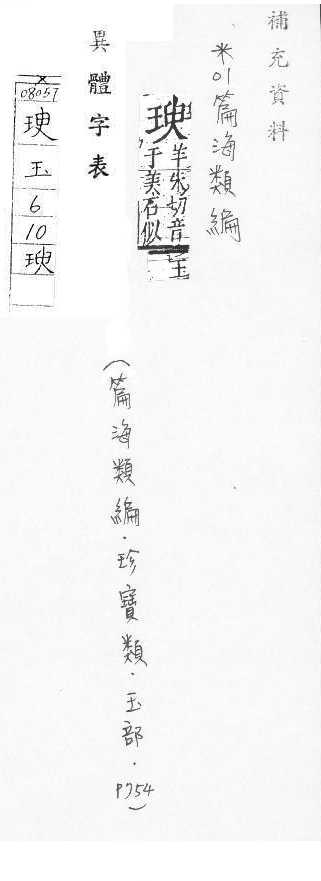 補充資料
※01篇海類編
羊朱切音
于美石似玉
異體字表
08057
玉
6
10
(篇海類編．珍寶類．玉部．P754)